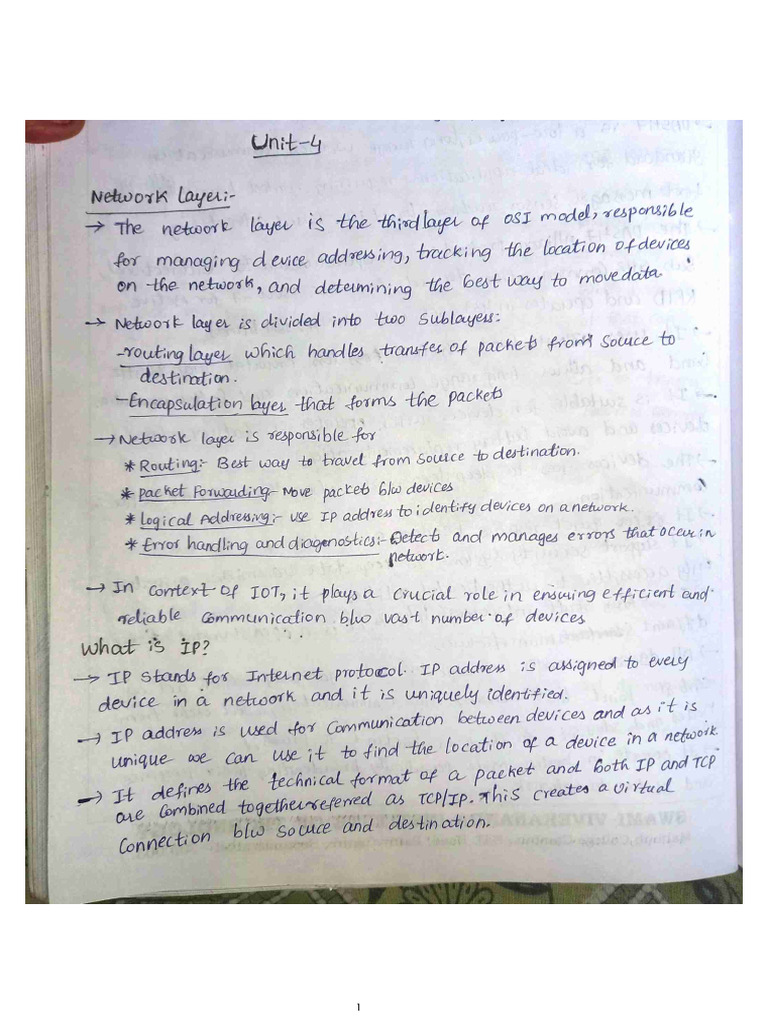 Unit-4
Network Layer:-
→ The network layer is the third layer of OSI model, responsible
for managing device addressing, tracking the location of devices
on the network, and determining the best way to move data
→ Network layer is divided into two Sublayers:
-routing layer which handles transfer of packets from source to
destination.
-Encapsulation layer that forms the packets
→ Network layer is responsible for
* Routing:- Best way to travel from source to destination.
* packet Forwarding- Move packets b/w devices
* Logical Addressing:- use IP address to identify devices on a network.
* Error handling and diagenostics:- Detects and manages errors that occur in
network.
→ In context of IOT, it plays a crucial role in ensuring efficient and
reliable communication b/w vast number of devices
What is IP?
→ IP stands for Internet protocol. IP address is assigned to every
device in a network and it is uniquely identified.
→ IP address is used for communication between devices and as it is
unique we can use it to find the location of a device in a network
→ It defines the technical format of a packet and both IP and TCP
are combined together referred as TCP/IP. This creates a virtual
connection b/w source and destination.
1